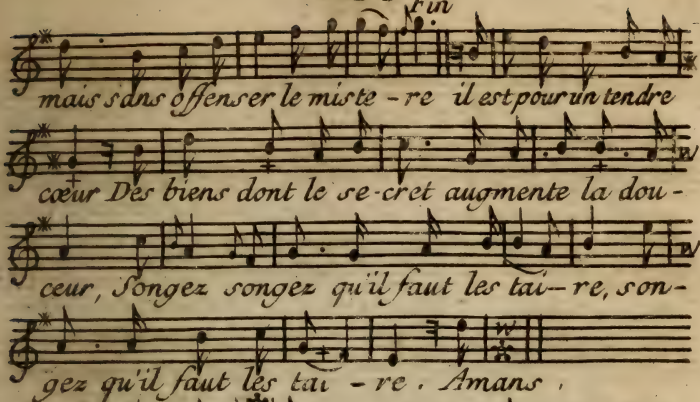 Fin
mais sans offenser le miste - re il est pour un tendre
cœur Des biens dont le se-cret augmente la dou-
ceur, Songez songez qu'il faut les tai-re, son-
gez qu'il faut les tai - re. Amans.